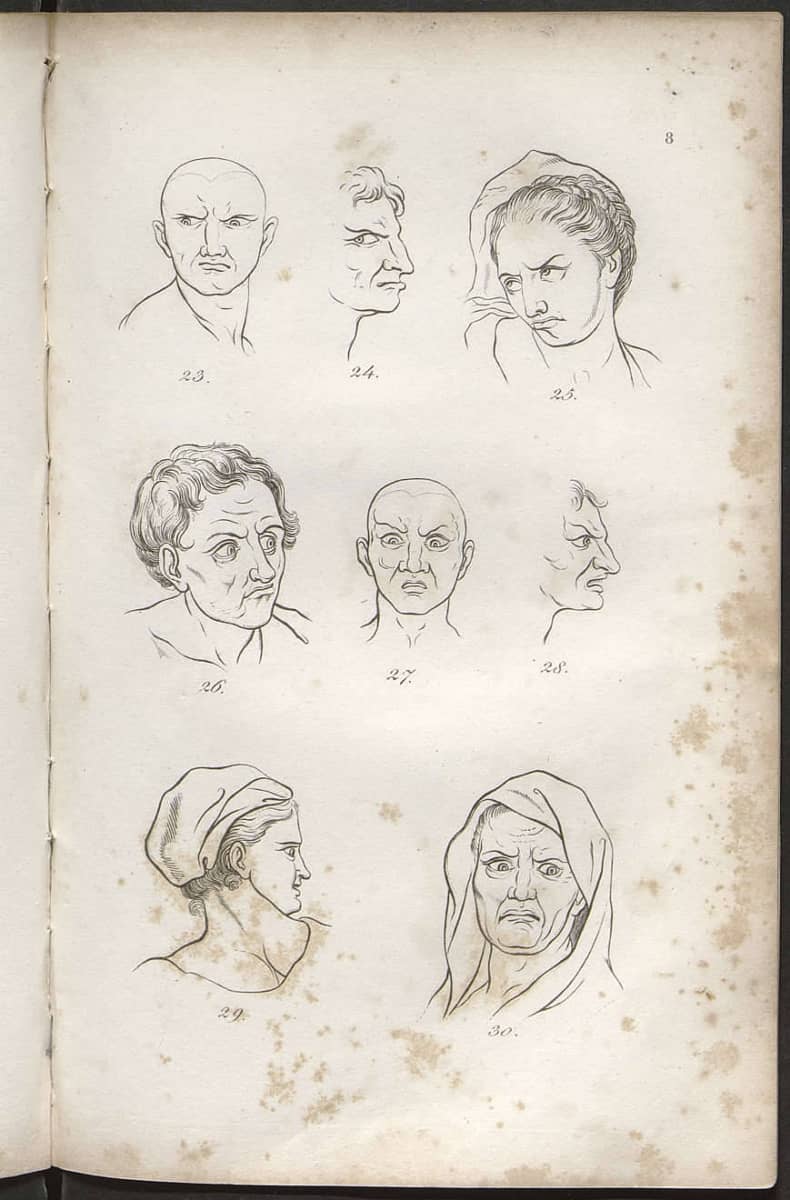 8
23.
24.
25.
26.
27.
28.
29.
30.